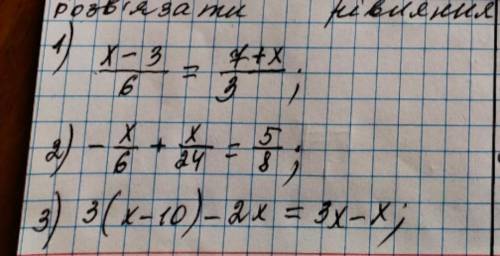 розв'язати рівняння
1) x - 3 / 6 = 7 + x / 3 ;
2) - x/6 + x/24 = 5/8 ;
3) 3(x-10) - 2x = 3x - x ;